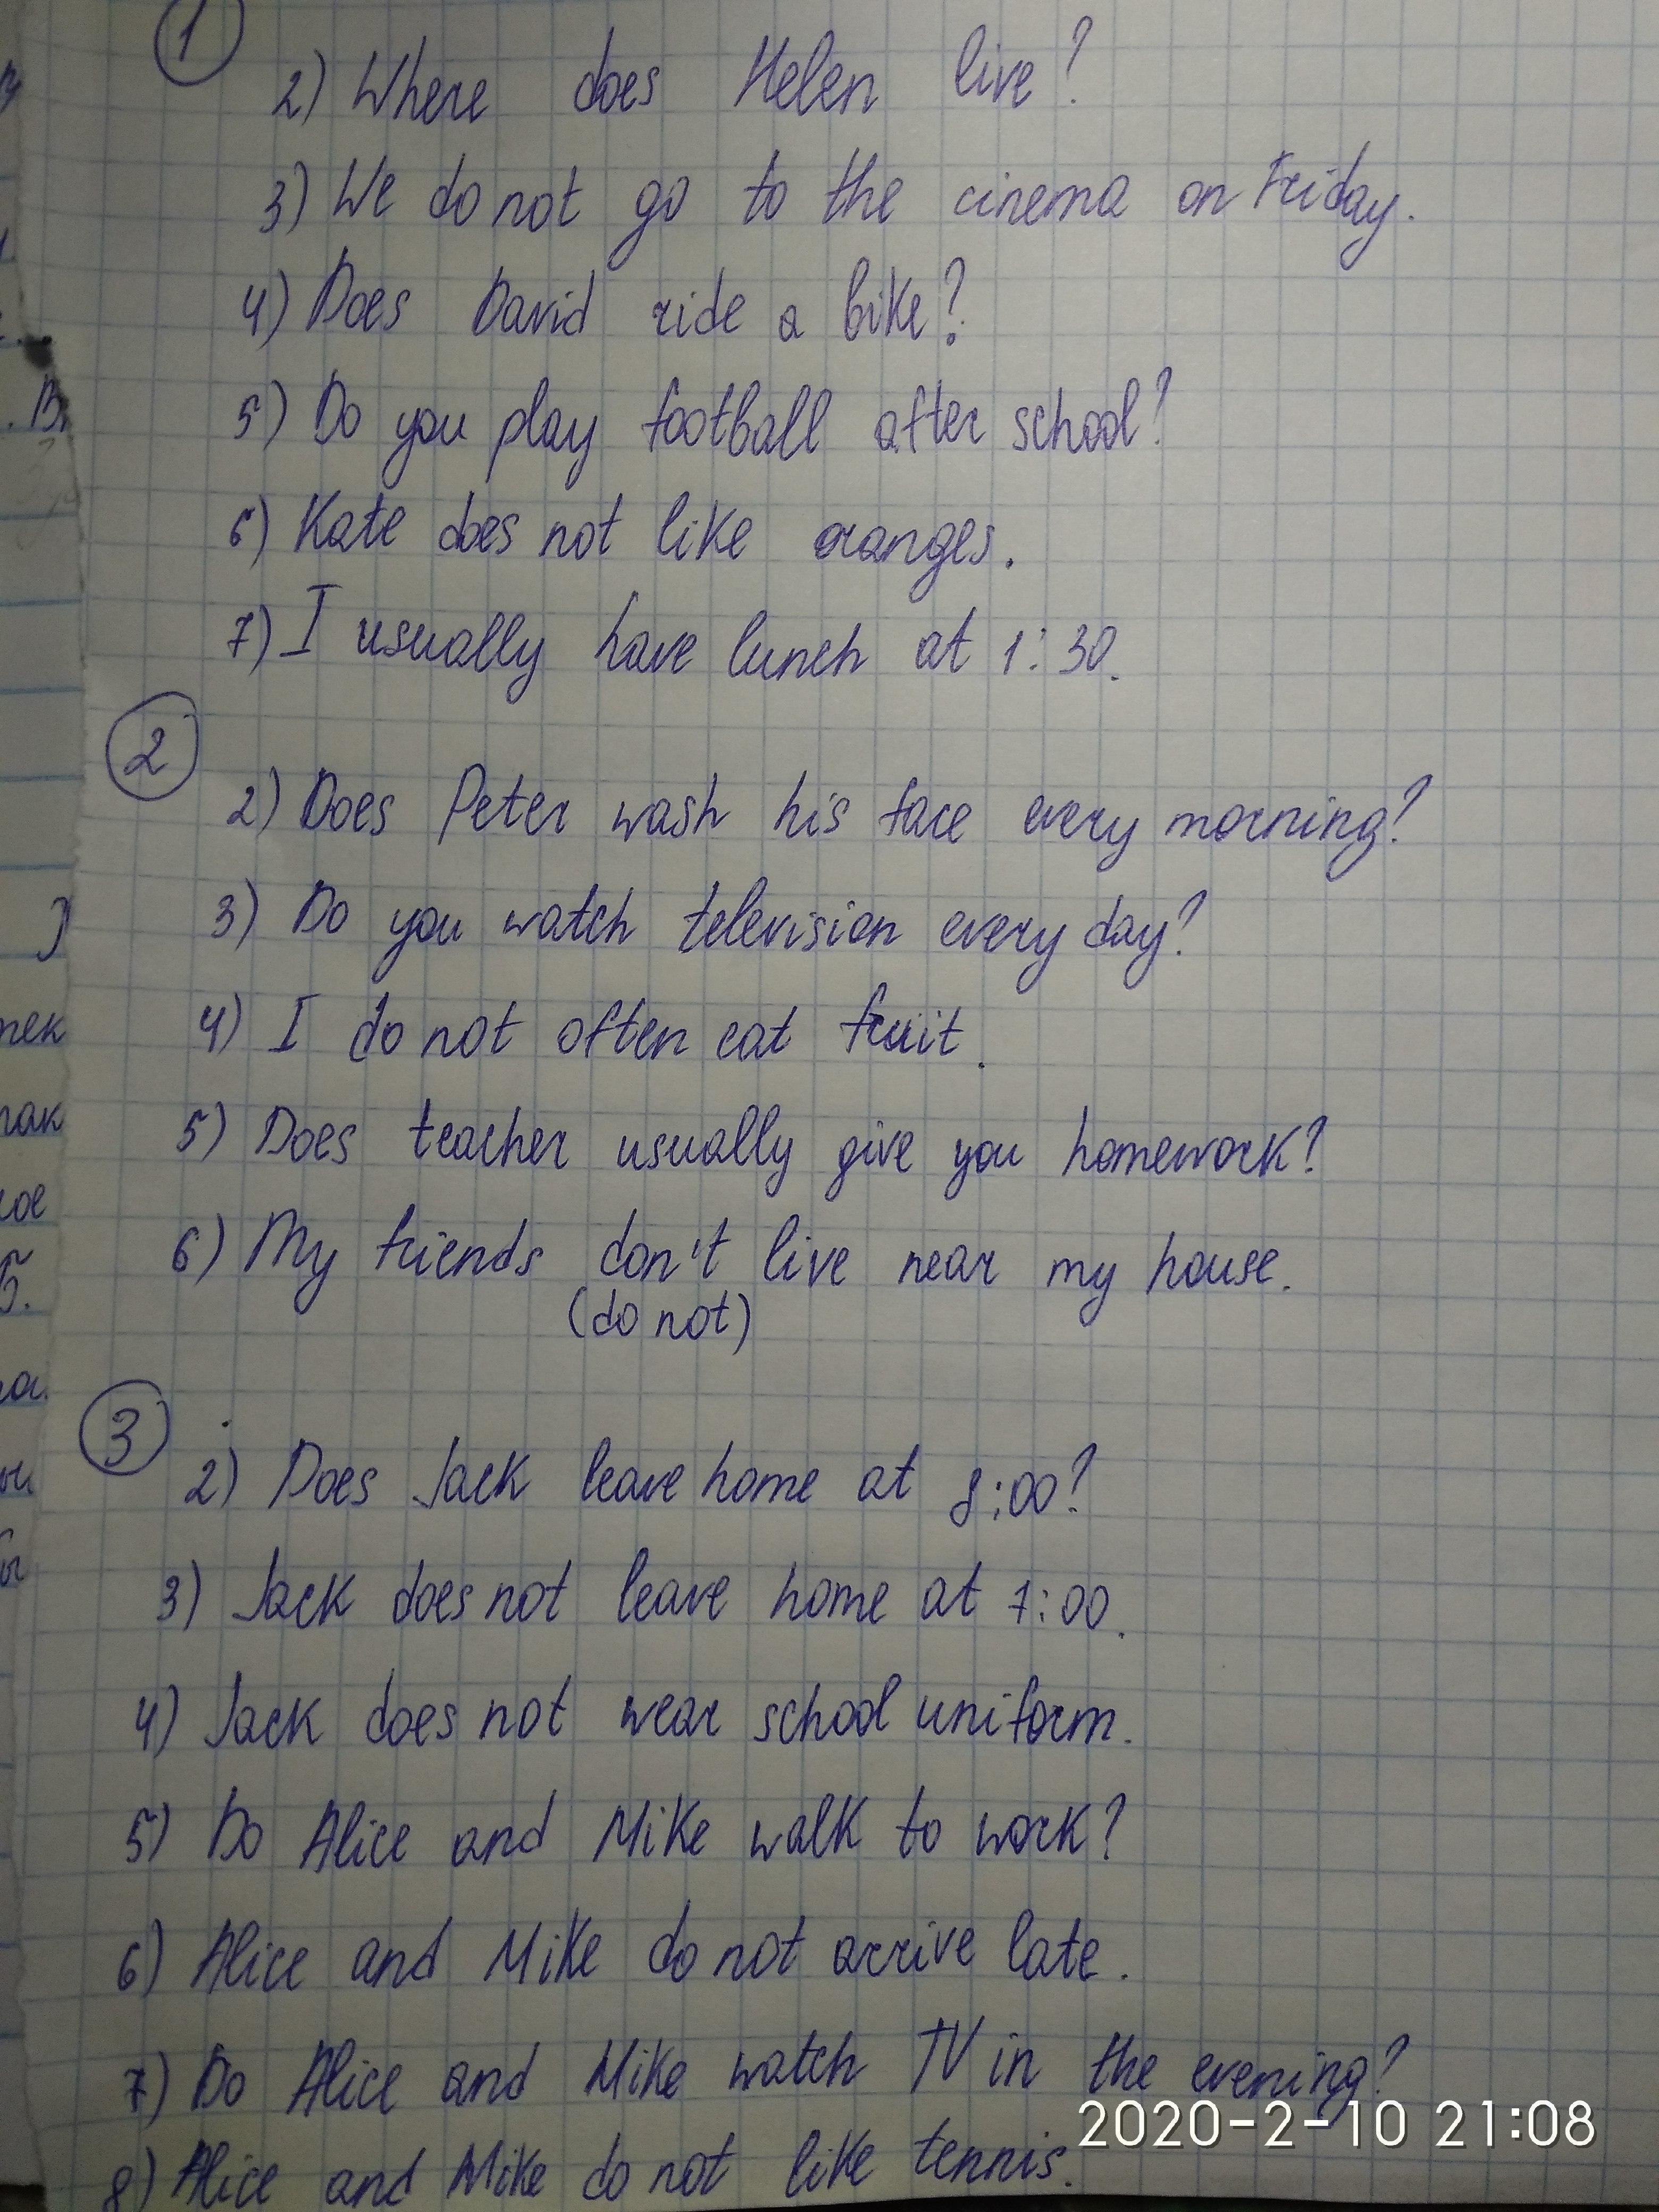 1
2) Where does Helen live?
3) We do not go to the cinema on Friday.
4) Does David ride a bike?
5) Do you play football after school?
6) Kate does not like oranges.
7) I usually have lunch at 1:30.
2
2) Does Peter wash his face every morning?
3) Do you watch television every day?
4) I do not often eat fruit.
5) Does teacher usually give you homework?
6) My friends don't live near my house.
(do not)
3
2) Does Jack leave home at 8:00?
3) Jack does not leave home at 7:00.
4) Jack does not wear school uniform.
5) Do Alice and Mike walk to work?
6) Alice and Mike do not arrive late.
7) Do Alice and Mike watch TV in the evening?
8) Alice and Mike do not like tennis.
2020-2-10 21:08